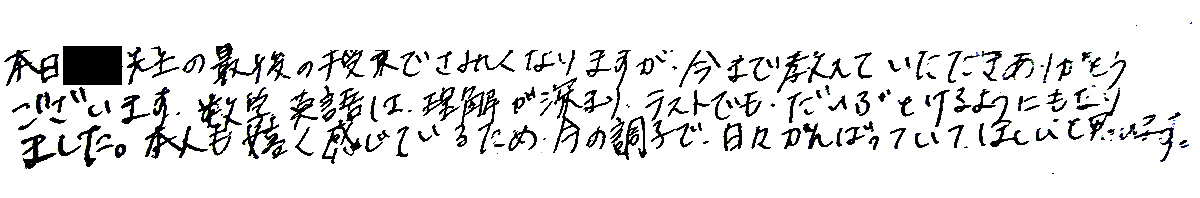 本日 先生の最後の授業でさみしくなりますが、今まで教えていただきありがとう
ございます。数学、英語は、理解が深まり、テストでも、だいぶとけるようにもなり
ました。本人も嬉く感じているため、今の調子で、日々がんばっていてほしいと思います。